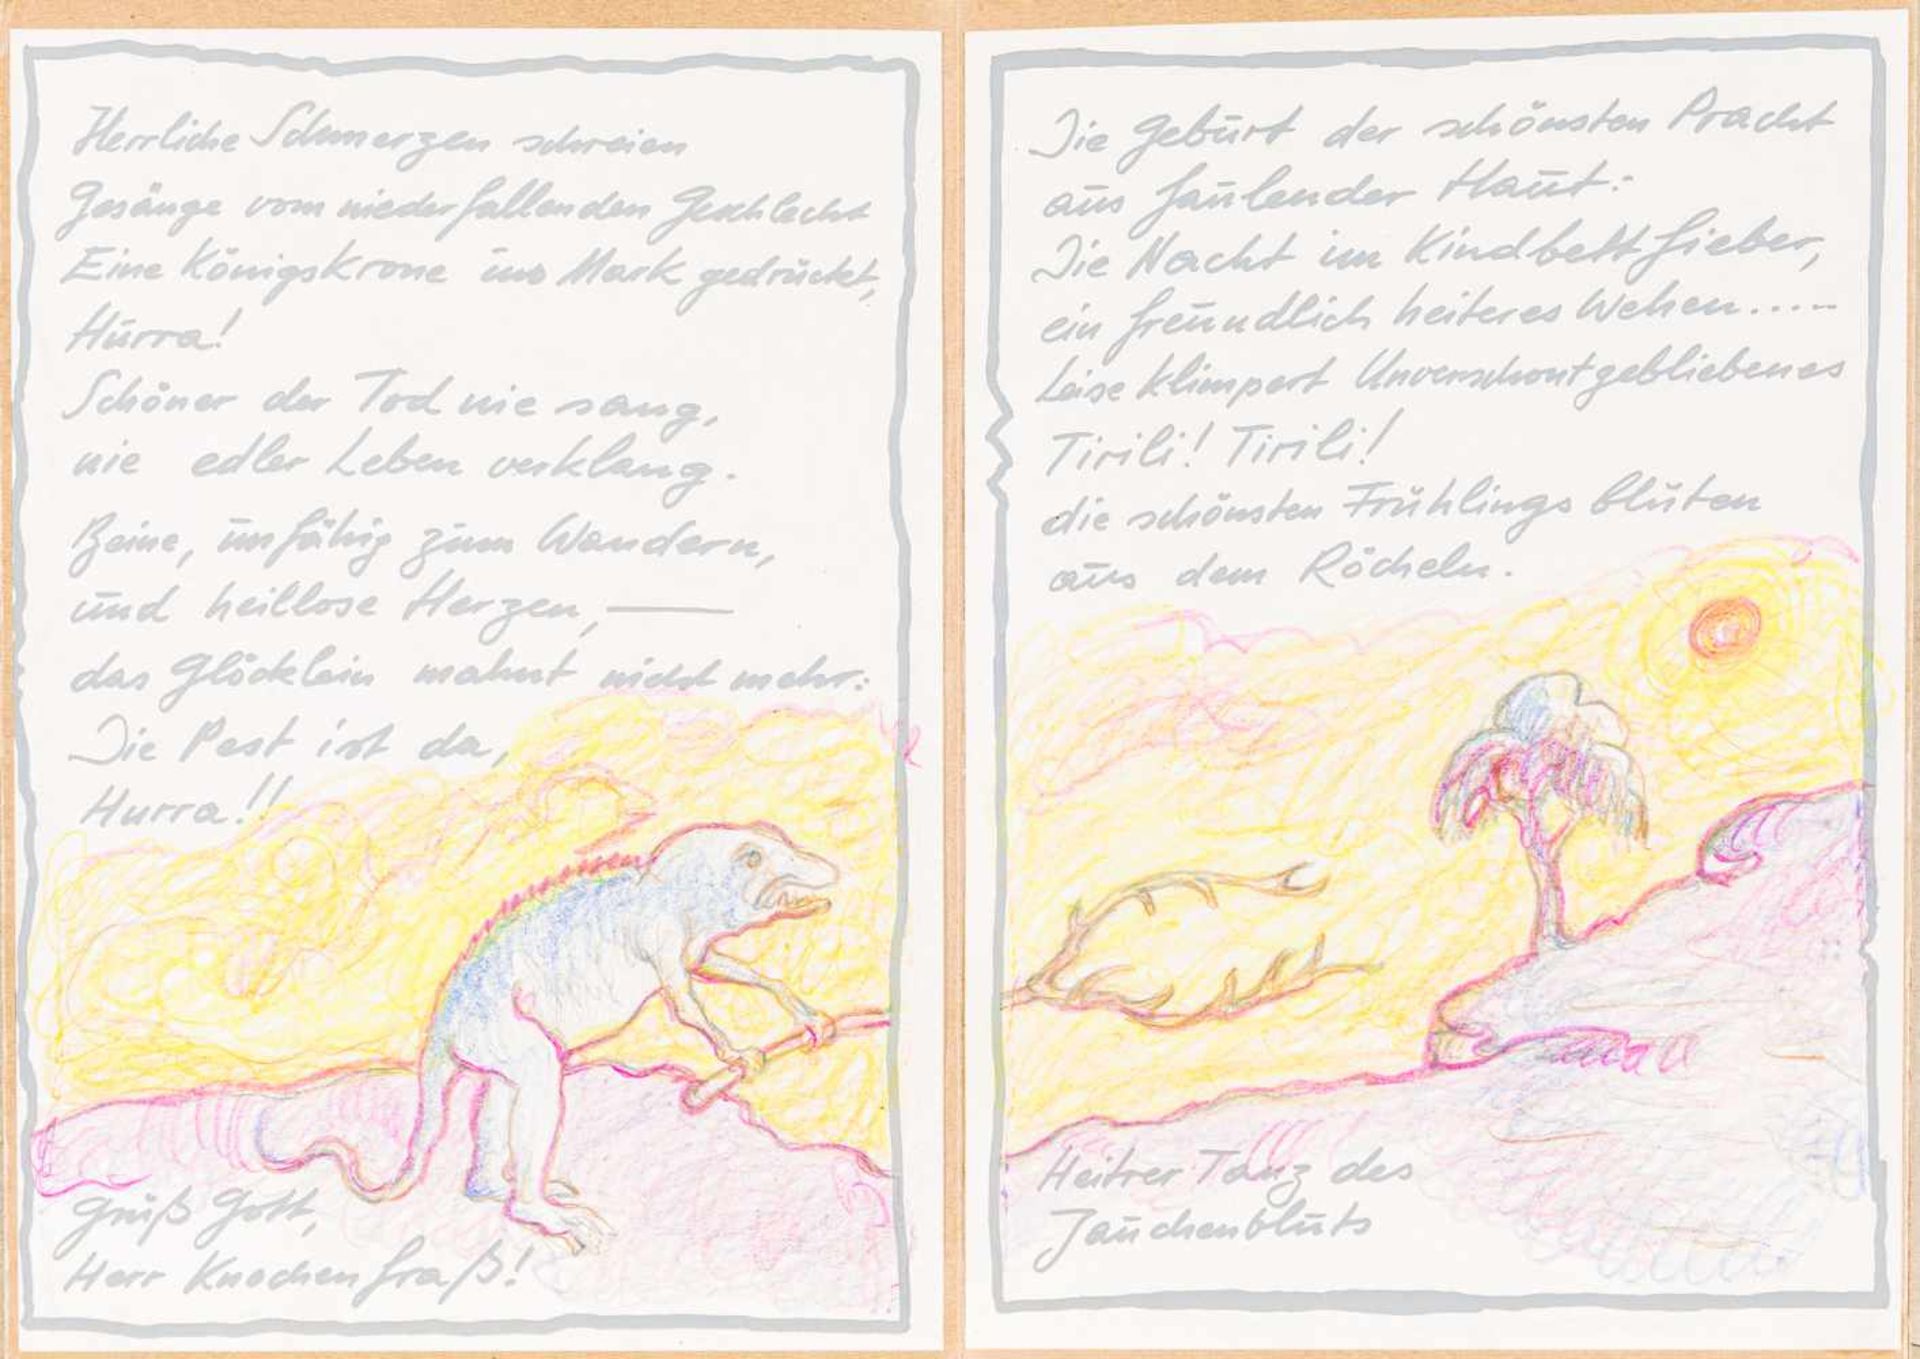 Herrliche Schmerzen schreien
Gesänge vom niederfallenden Geschlecht
Eine Königskrone ins Mark gedrückt,
Hurra!
Schöner der Tod nie sang,
nie edler Leben verklang.
Beine, unfähig zum Wandern,
und heillose Herzen, —
das Glöcklein mahnt nicht mehr:
Die Pest ist da,
Hurra!!
Grüß Gott,
Herr Knochenfraß!
Die Geburt der schönsten Pracht
aus faulender Haut:
Die Nacht im Kindbettfieber,
ein freundlich heiteres Wehen.....
Leise klimpert Unverschontgebliebenes
Tirili! Tirili!
die schönsten Frühlingsblüten
aus dem Röcheln.
Heitrer Tanz des
Jauchenbluts